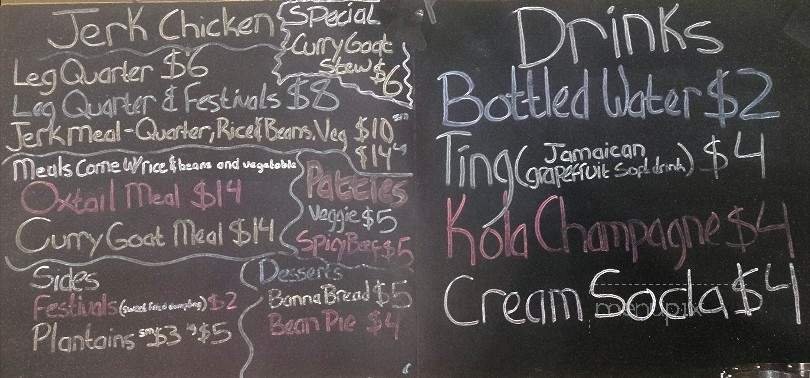 Jerk Chicken
Leg Quarter $6
Leg Quarter & Festivals $8
Jerk Meal-Quarter, Rice & Beans, Veg $10 sm
$14 Lg
Special
Curry Goat
Stew $6
Meals Come W/rice & beans and vegetable
Oxtail Meal $14
Curry Goat Meal $14
Patties
Veggie $5
Spicy Beef $5
Sides
Festivals (sweet fried dumpling) $2
Plantains sm $3 lg $5
Desserts
Banna Bread $5
Bean Pie $4
Drinks
Bottled Water $2
Ting (Jamaican
grapefruit soft drink) $4
Kola Champagne $4
Cream Soda $4